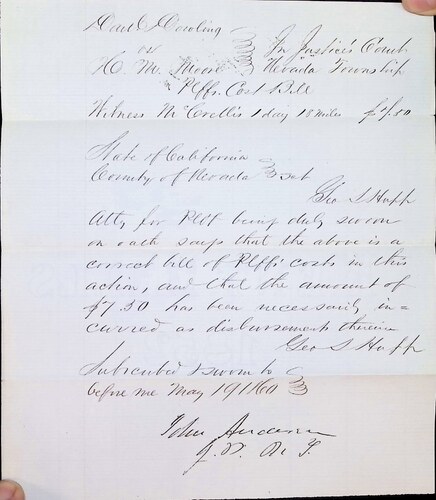 Paul Dowling } In Justice's Court
vs
H. M. Moore } Nevada Township
Plffs. Cost Bill
Witness McCrellis 1 day 18 miles $7.50
State of California }
County of Nevada } Sct
Geo S Hupp
Atty for Plff being duly sworn
on oath says that the above is a
correct bill of Plffs costs in this
action, and that the amount of
$7.50 has been necessarily in=
curred as disbursement therein
Geo S Hupp
Subscribed & sworn to }
before me May 19 1860 }
John Anderson
J. P. N. T.